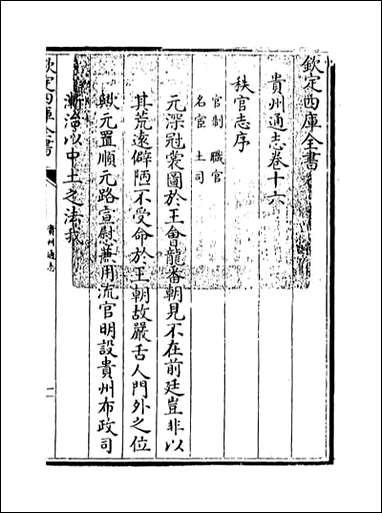 欽定四庫全書
貴州通志卷十六
秩官志序
官制 職官
名宦 土司
元深冠裳圖於王會龍番朝見不在前廷豈非以
其荒遠僻陋不受命於王朝故嚴舌人門外之位
歟元置順元路宣慰兼用流官明設貴州布政司
漸治以中土之法我
欽定四庫全書
貴州通志